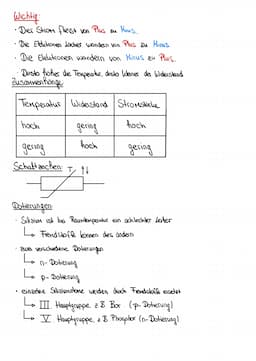 Wichtig:
· Der Strom fliesst von Plus zu Minus.
· Die Löcher wandern von Plus zu Minus.
· Die Elektronen wandern von Minus zu Plus.
· Desto höher die Temperatur, desto kleiner der Widerstand
Zusammenhänge:
Temperatur Widerstand Stromstärke
hoch gering hoch
gering hoch gering
Schaltzeichen:
T ↑↓
Dotierungen
· Silizium ist bei Raumtemperatur ein schlechter Leiter
↳ Fremdstoffe können dies ändern
· zwei verschiedene Dotierungen
↳ n-Dotierung
↳ p-Dotierung
· einzelne Siliziumatome werden durch Fremdstoffe ersetzt
↳ III Hauptgruppe z.B Bor (p-Dotierung)
↳ V Hauptgruppe z.B Phosphor (n-Dotierung)